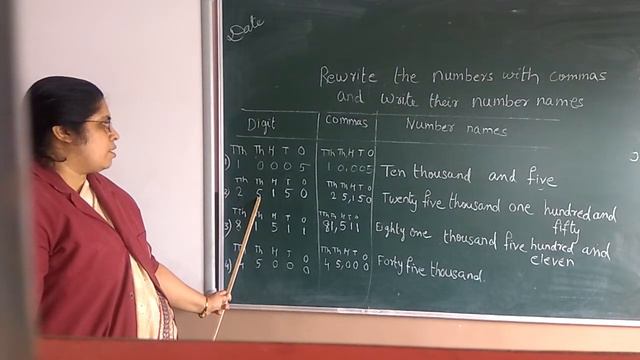 Date
Rewrite the numbers with commas
and write their number names
Digit commas Number names
TTh Th H T O TTh Th H T O
1) 1 0 0 0 5 1 0,005 Ten thousand and five
TTh Th H T O TTh Th H T O
2) 2 5 1 5 0 2 5,150 Twenty five thousand one hundred and
fifty
TTh Th H T O TTh Th H T O
3) 8 1 5 1 1 81,511 Eighty one thousand five hundred and
eleven
TTh Th H T O TTh Th H T O
4) 4 5 0 0 0 4 5,000 Forty five thousand.